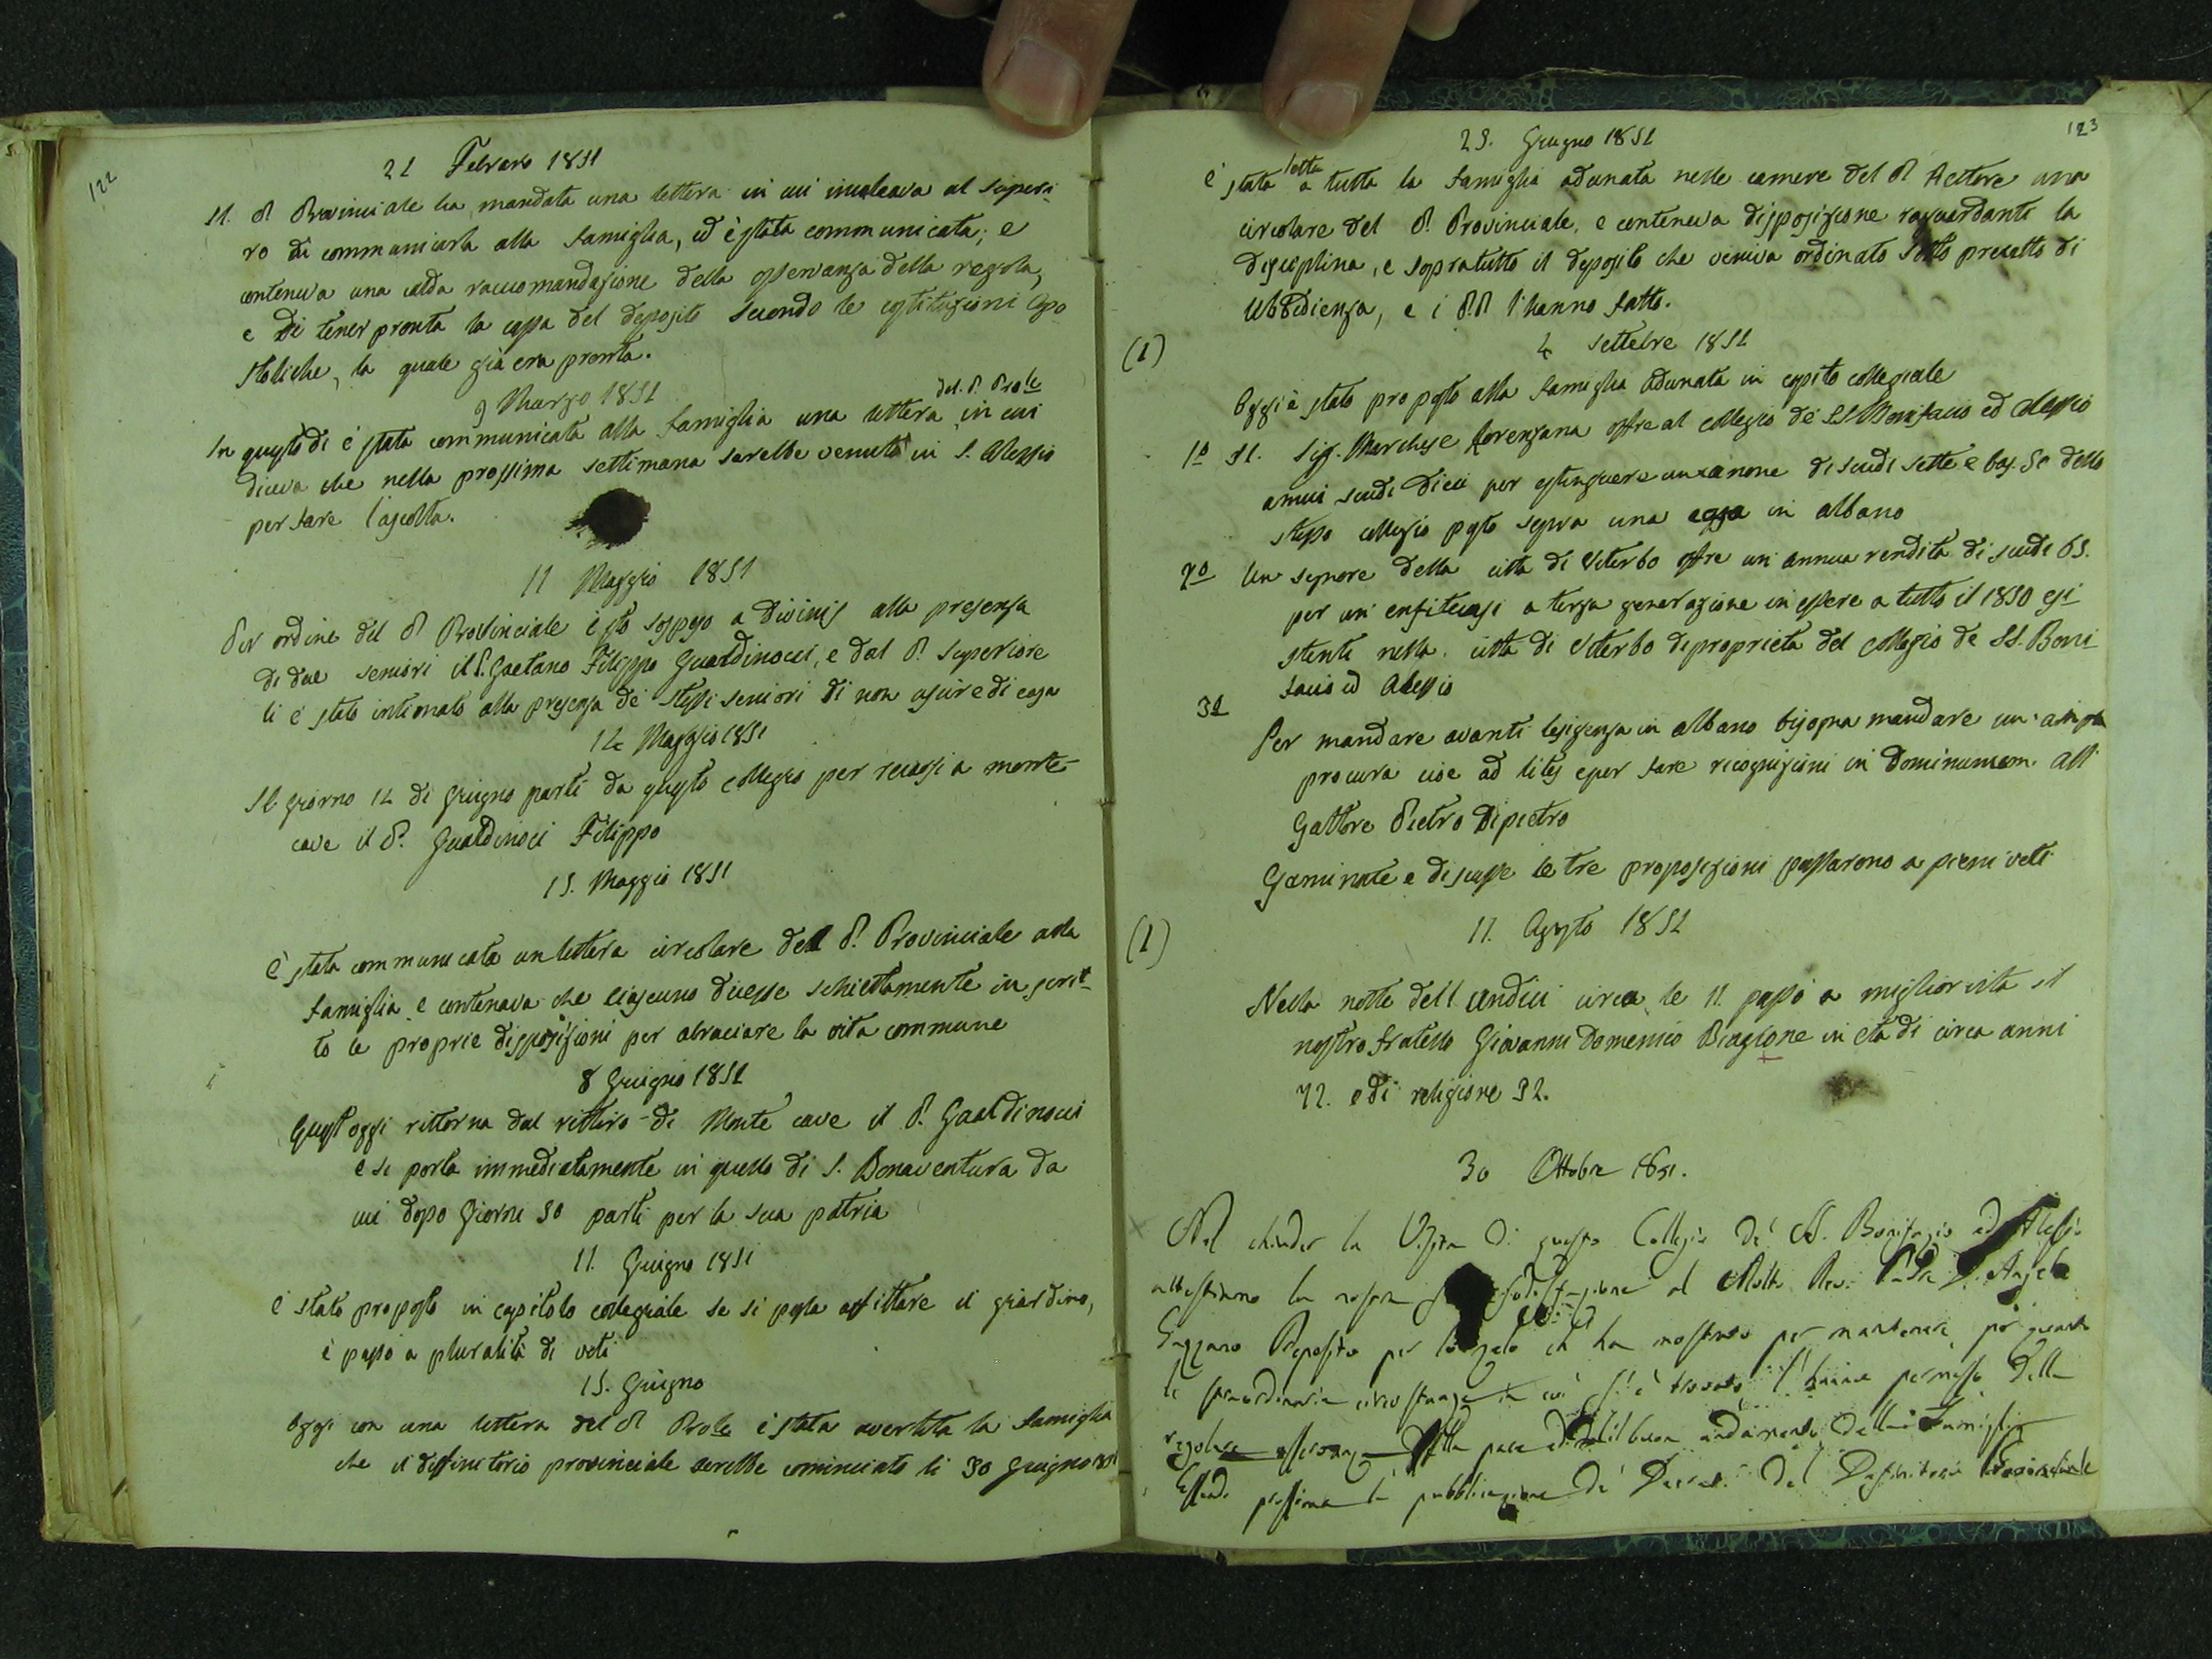 122
21 Febraro 1851
Il P. Provinciale ha mandata una lettera in cui inculcava al superi-
ro di communicarla alla famiglia, ed è stata communicata; e
conteneva una calda raccomandazione della osservanza della regola,
e di tener pronta la cassa del deposito secondo le costituzioni Apo-
stoliche, la quale già era pronta.
9 Marzo 1851
del P. Prole
In questo dì è stata communicata alla famiglia una lettera in cui
diceva che nella prossima settimana sarebbe venuto in S. Alessio
per fare l'ascolta.
11 Maggio 1851
Per ordine del P. Provinciale è sto sospeso a divinis alla presenza
di due seniori il P. Gaetano Filippo Gualdinocci, e dal P. Superiore
li è stato intimato alla presenza de stessi seniori di non uscire di casa
12 Maggio 1851
Il giorno 12 di Giugno partì da questo collegio per recarsi a monte-
cave il P. Gualdinoci Filippo
15. Maggio 1851
È stata communicata un lettera circolare del P. Provinciale alla
famiglia e contenava che ciascuno dicesse schiettamente in scrit-
to le proprie disposizioni per abraciare la vita commune
8 Giugno 1851
Quest oggi rittorna dal rittiro di Monte cave il P. Gualdinocci
e si porta immediatamente in quello di S. Bonaventura da
cui dopo Giorni 30 partì per la sua patria
11. Giugno 1851
È stato proposto in capitolo collegiale se si possa affittare il giardino,
è passò a pluralità di voti
15. Giugno
Oggi con una lettera del P. Prole è stata avertita la famiglia
che il diffinitorio provinciale sarebbe cominciato li 30 Giugno
123
25. Giugno 1851
letta
È stata a tutta la famiglia adunata nelle camere del P. Rettore una
circolare del P. Provinciale, e conteneva disposizione raguardanti la
disciplina, e sopratutto il deposito che veniva ordinato sotto precetto di
Ubbidienza, e i P.P. l'hanno fatto.
(1)
4 Settebre 1851
Oggi è stato proposto alla famiglia adunata in capito collegiale
1º Il Sig. Marchese Lorenzana offre al collegio de SS. Bonifacio ed Alessio
annui scudi dieci per estinguere un canone di scudi sette e baj. 50 dello
stesso collegio posto sopra una casa in albano
2º Un signore della città di Viterbo offre un annua rendita di scudi 65.
per un enfiteusi a terza generazione in essere a tutto il 1850 esi-
stente nella città di Viterbo di proprietà del collegio de SS. Boni-
facio ed Alessio
3º
Per mandare avanti l'esigenza in albano bisogna mandare un ampla
procura cioe ad lites e per fare ricognizioni in Dominumem all
Gattore Pietro Dipietro
Gaminate e discusse le tre proposizioni passarono a pieni voti
(1)
11. Agosto 1851
Nella notte dell undici circa le 11. passò a miglior vita il
nostro fratello Giovanni Domenico Biagione in età di circa anni
72. e di religione 32.
30 Ottobre 1851.
Nel chiuder la Visita di questo Collegio de' SS. Bonifazio ed Alessio
attestiamo la nostra soddisfazione al Molto Rev. Padre D. Angelo
Preposito per lo zelo ch ha mostrato per mantenere per quanto
le straordinarie circostanze in cui si è trovato l'hanno permesso della
regolare osservanza della pace e del buon andamento della Famiglia
Essendo prossima la pubblicazione de' Decreti del Definitorio Provinciale